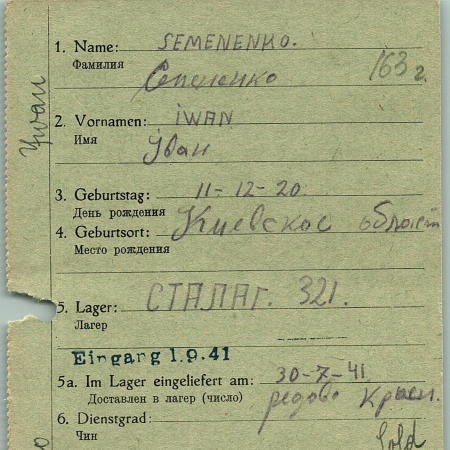 1. Name: SEMENENKO.
Фамилия
Семененко 163 г.
2. Vornamen: IWAN
Имя
Iван
3. Geburtstag: 11-12-20.
День рождения
4. Geburtsort: Киевское
Место рождения
5. Lager: СТАЛАГ. 321.
Лагерь
Eingang 1.9.41
5a. Im Lager eingeliefert am: 30-7-41.
Доставлен в лагер (число)
6. Dienstgrad:
Чин
Sold